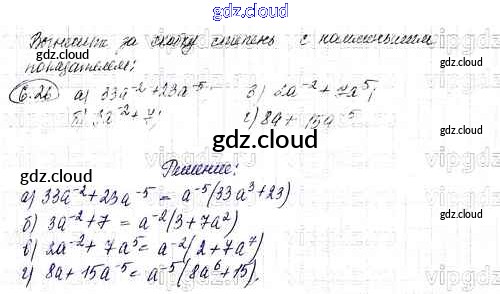 gdz.cloud
Вынесите за скобку степень с наименьшим
показателем:
6.26 а) 33a⁻²+23a⁻⁵; в) 2a⁻²+7a⁵;
б) 3a⁻²+7; г) 8a+15a⁻⁵
gdz.cloud gdz.cloud
Решение:
а) 33a⁻²+23a⁻⁵ = a⁻⁵(33a³+23)
б) 3a⁻²+7 = a⁻²(3+7a²)
в) 2a⁻²+7a⁵ = a⁻²(2+7a⁷)
г) 8a+15a⁻⁵ = a⁻⁵(8a⁶+15).
gdz.cloud